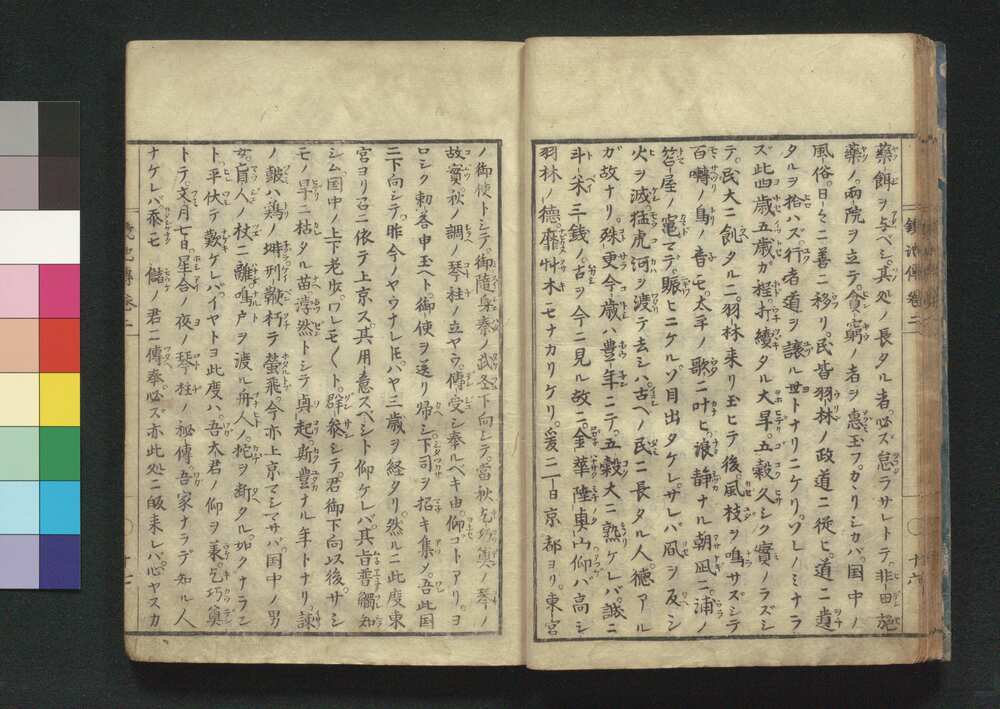 藥餌ヲ与ベシ其処ノ長タル者必ズ怠ラサレトテ非田施
藥ノ両院ヲ立テ貪窮ノ者ヲ惠玉フカヽリシカバ国中ノ
風俗日々ニ善ニ移リ民皆羽林ノ政道ニ従ヒ道ニ遺
タルヲ拾ハズ行者道ヲ讓ル世トナリニケリソレノミナラ
ズ此四歳五歳ガ程打續タル大旱五穀久シク實ノラズシ
テ民大ニ飢タルニ羽林来リ玉ヒテ後風枝ヲ鳴サズシテ
百囀ノ鳥ノ音モ太平ノ歌ニ叶ヒ浪静ナル朝凪ニ浦ノ
笘屋ノ竃マデ賑ヒニケルゾ目出タケレサレバ風ヲ反シ
火ヲ滅猛虎河ヲ渡テ去シハ古ヘノ民ニ長タル人德アル
ガ故ナリ殊更今歳ハ豊年ニテ五穀大ニ熟ケレバ誠ニ
斗米三錢ノ古ヲ今ニ見ル故ニ金華陸奥山仰バ高シ
羽林ノ德靡艸木モナカリケリ爰ニ一日京都ヨリ東宮
十六
ノ御使トシテ御隨身秦ノ武圣下向シテ當秋乞巧奠ノ琴ノ
故實秋ノ調ノ琴柱ノ立ヤウ傳受シ奉ルベキ由仰コトアリヨ
ロシク勅答申玉ヘト御使ヲ送リ帰シ下司ヲ招キ集ツ吾此国
ニ下向シテ昨今ノヤウナレ𪜈ハヤ三歳ヲ経タリ然ルニ此度東
宮ヨリ召ニ依テ上京ス其用意スベシト仰ケレバ其旨普觸知
シム国中ノ上下老少ワレモ〳〵ト群參シテ君御下向以後サシ
モノ旱ニ枯タル苗浡然トシテ真起断豊ナル年トナリ諌
ノ皷ハ鶏ノ塒刑鞭朽テ螢飛今亦上京マシマサバ国中ノ男
女盲人ノ杖ニ離鳴戸ヲ渡ル舟人ノ柁ヲ断タル如クナラン
ト平伏テ歎ケレバイヤトヨ此度ハ吾大君ノ仰ヲ蒙乞巧奠
トテ文月七日星合ノ夜ノ琴柱ノ秘傳吾家ナラデ知ル人
ナケレバ忝モ儲ノ君ニ傳奉必ズ亦此処ニ皈来レバ心ヤスカ